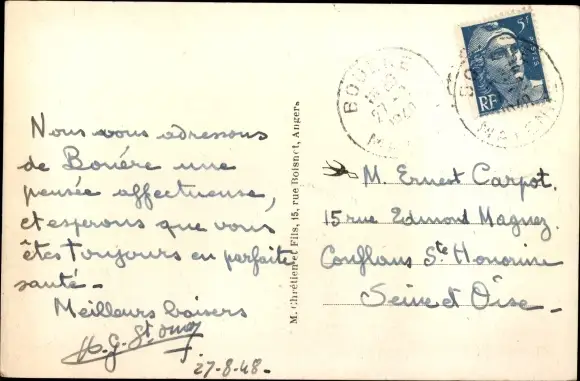 Nous vous adressons
de Bouére une
pensée affectueuse,
et esperons que vous
êtes toujours en parfaite
santé -
Meilleurs baisers
27-8-48-
M. Chrétien et Fils, 15, rue Boisnet, Angers
BOUERE
27-8
MAYENNE
5F
POSTES
RF
M. Ernest Carpot.
15 rue Edmond Magnez
Conflans Ste Honorine
Seine et Oise -